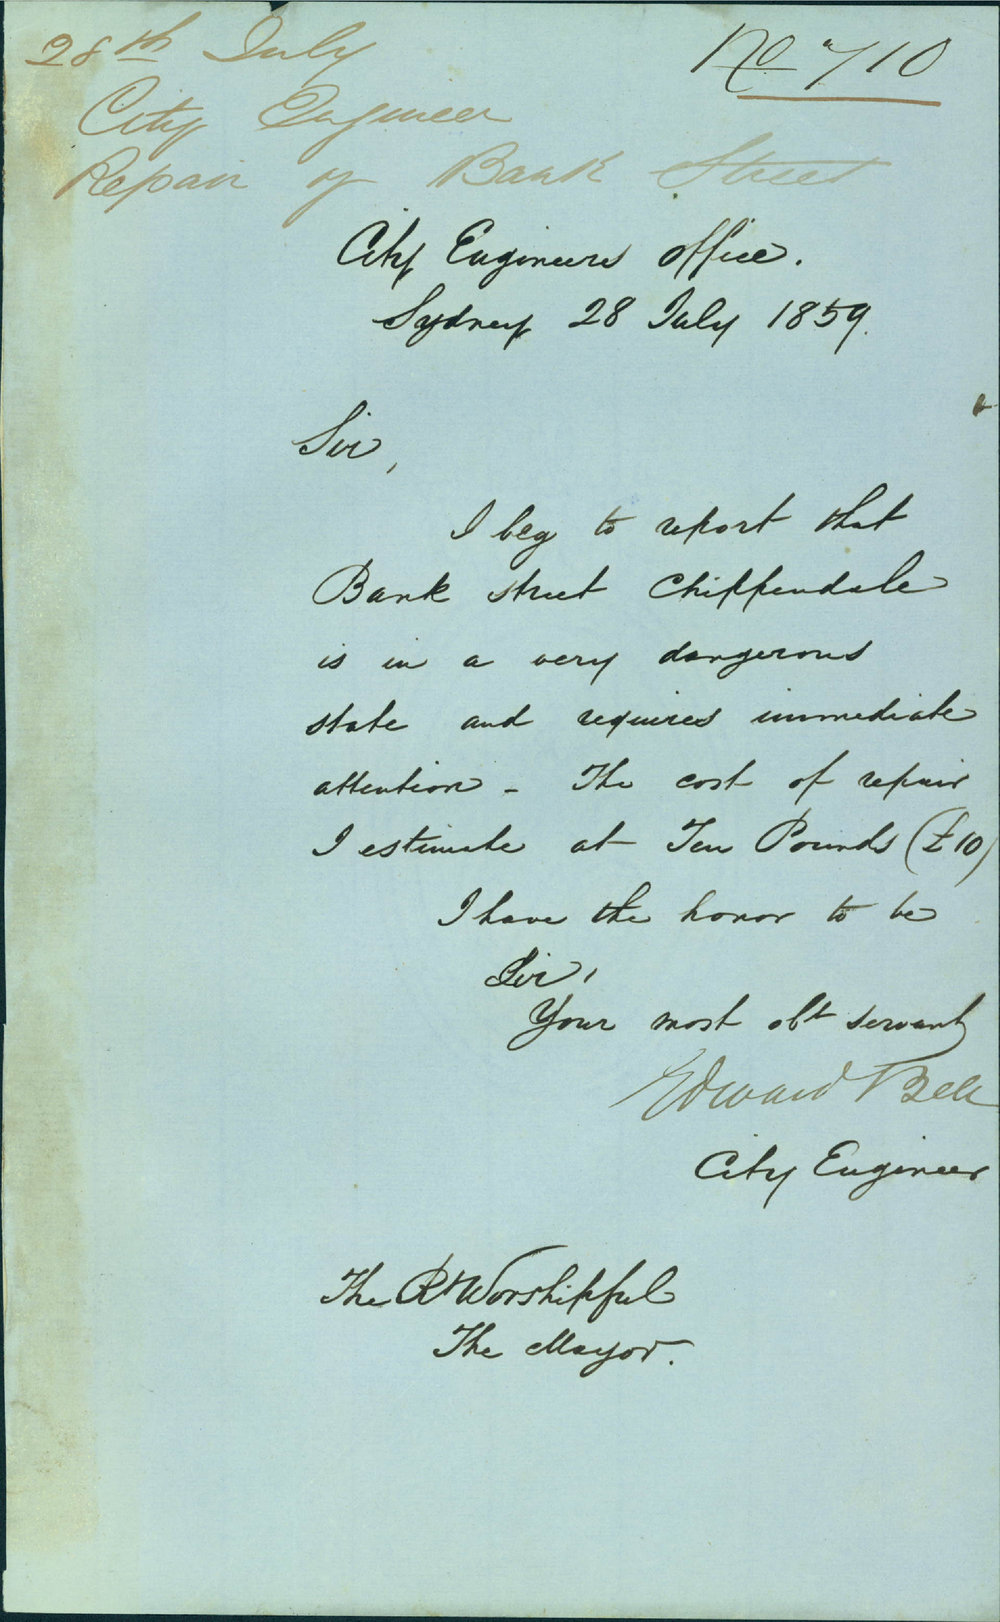 28th July
No 710
City Engineer
Repair of Bank Street
City Engineers office.
Sydney 28 July 1859.
Sir,
I beg to report that
Bank street Chippendale
is in a very dangerous
state and requires immediate
attention - The cost of repair
I estimate at Ten Pounds (£10)
I have the honor to be
Sir,
Your most obt servant
Edward Bell
City Engineer
The Rt Worshipful
The Mayor.